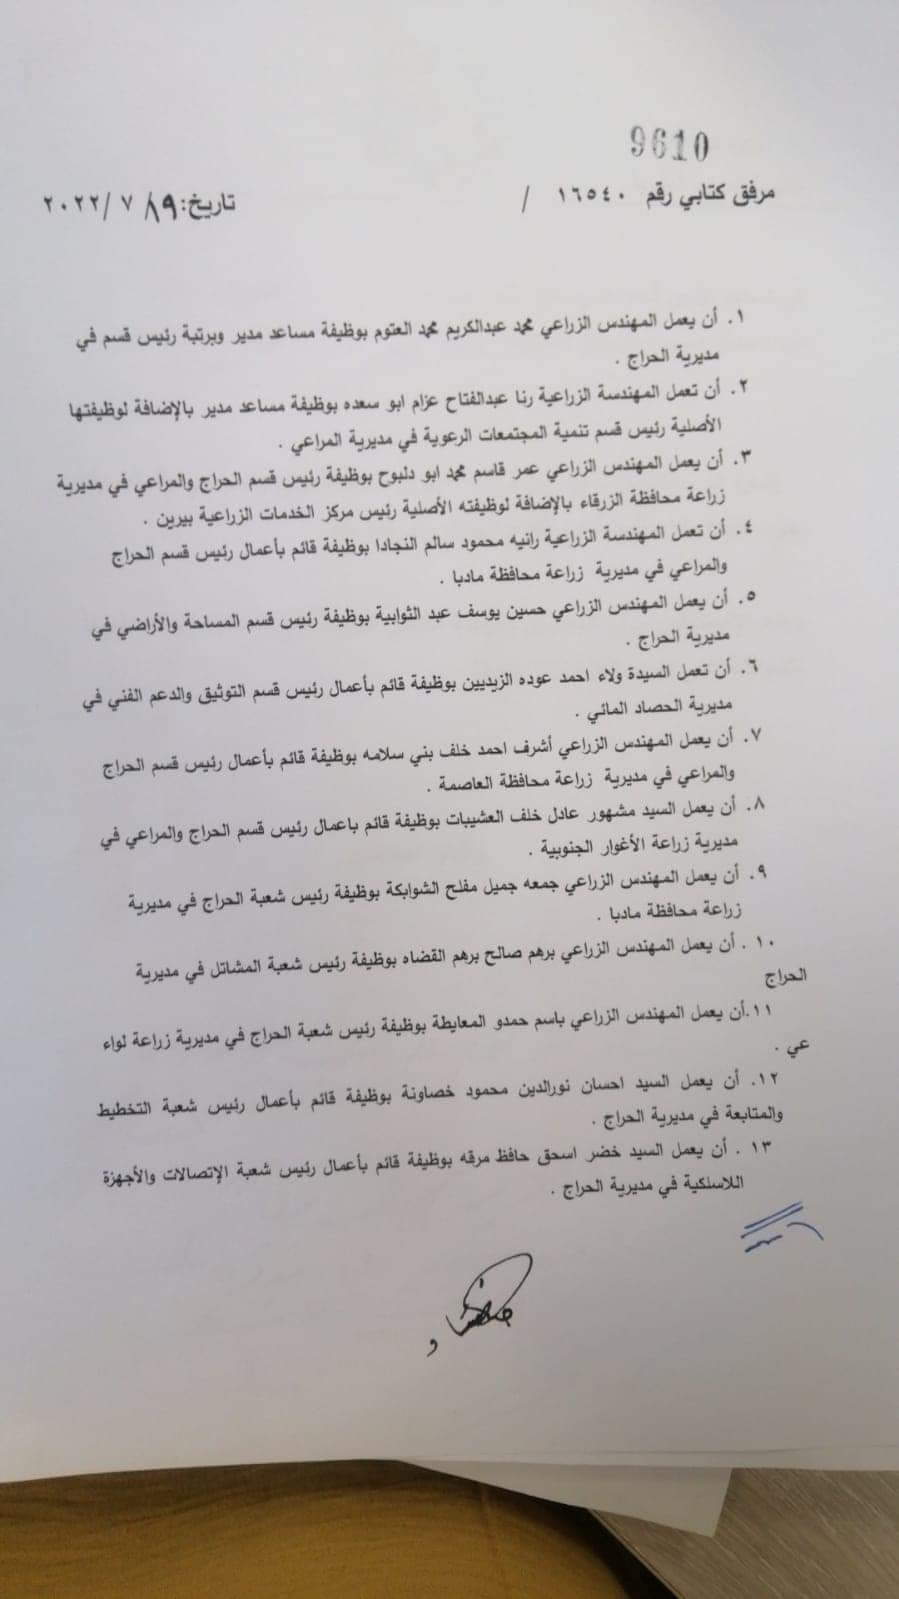 9610
مرفق كتابي رقم ١٦٥٤٠ / تاريخ: ١٩/ ٧ /٢٠٢٢
١. أن يعمل المهندس الزراعي محمد عبدالكريم محمد العتوم بوظيفة مساعد مدير وبرتبة رئيس قسم في
مديرية الحراج .
٢. أن تعمل المهندسة الزراعية رنا عبدالفتاح عزام ابو سعده بوظيفة مساعد مدير بالإضافة لوظيفتها
الأصلية رئيس قسم تنمية المجتمعات الرعوية في مديرية المراعي .
٣. أن يعمل المهندس الزراعي عمر قاسم محمد ابو دلبوح بوظيفة رئيس قسم الحراج والمراعي في مديرية
زراعة محافظة الزرقاء بالإضافة لوظيفته الأصلية رئيس مركز الخدمات الزراعية بيرين .
٤. أن تعمل المهندسة الزراعية رانيه محمود سالم النجادا بوظيفة قائم بأعمال رئيس قسم الحراج
والمراعي في مديرية زراعة محافظة مادبا .
٥. أن يعمل المهندس الزراعي حسين يوسف عبد الثوابية بوظيفة رئيس قسم المساحة والأراضي في
مديرية الحراج .
٦. أن تعمل السيدة ولاء احمد عوده الزيديين بوظيفة قائم بأعمال رئيس قسم التوثيق والدعم الفني في
مديرية الحصاد المائي .
٧. أن يعمل المهندس الزراعي أشرف احمد خلف بني سلامه بوظيفة قائم بأعمال رئيس قسم الحراج
والمراعي في مديرية زراعة محافظة العاصمة .
٨. أن يعمل السيد مشهور عادل خلف العشيبات بوظيفة قائم باعمال رئيس قسم الحراج والمراعي في
مديرية زراعة الأغوار الجنوبية .
٩. أن يعمل المهندس الزراعي جمعه جميل مفلح الشوابكة بوظيفة رئيس شعبة الحراج في مديرية
زراعة محافظة مادبا .
١٠ . أن يعمل المهندس الزراعي برهم صالح برهم القضاه بوظيفة رئيس شعبة المشاتل في مديرية
الحراج
١١.أن يعمل المهندس الزراعي باسم حمدو المعايطة بوظيفة رئيس شعبة الحراج في مديرية زراعة لواء
عي .
١٢. أن يعمل السيد احسان نورالدين محمود خصاونة بوظيفة قائم بأعمال رئيس شعبة التخطيط
والمتابعة في مديرية الحراج .
١٣ . أن يعمل السيد خضر اسحق حافظ مرقه بوظيفة قائم بأعمال رئيس شعبة الإتصالات والأجهزة
اللاسلكية في مديرية الحراج .